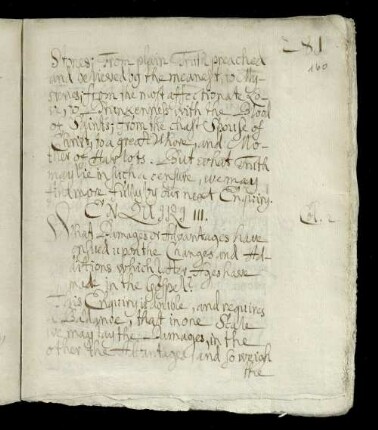 281
160
Stories; From plain Truth preached
and believed by the meanest, to My-
steries; from the most affectionate Lo-
ve, to Drunkennes with the Blood
of Saints; from the chast Spouse of
Christ, to a great Whore, and Mo-
ther of Harlots. But what Truth
may lie in such a censure, we may
find more fully by our next Enquiry.
ENQUIRY III.
What Damages or Advantages have
ensued upon the Changes and Ad-
ditions which later Ages have
made in the Gospel?
This Enquiry is double, and requires
a Balance, that in one Scale
we may lay the Damages, in the
other the Advantages, and so weigh
the